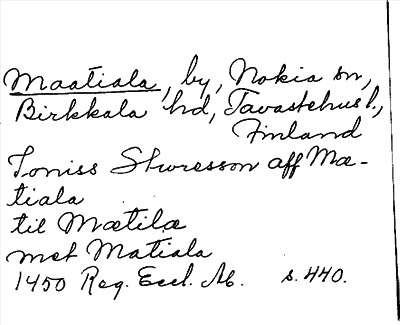 Maatiala, by, Nokia sn,
Birkkala hd, Tavastehus l.,
Finland
Joniss Sturesson aff Mæ-
tiala
til Mætilæ
met Matiala
1450 Reg. Eccl. Ab. s. 440.